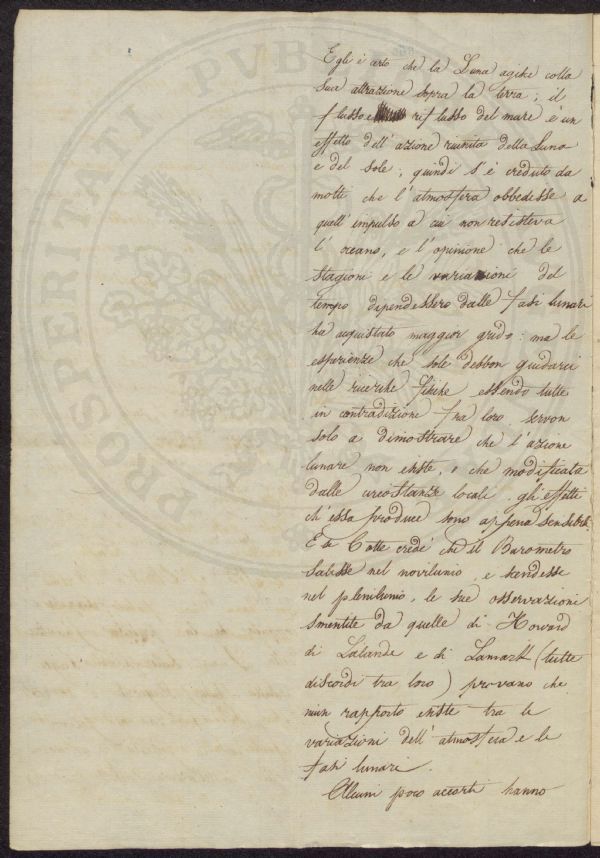 Egli è certo che la Luna agisce colla
sua attrazione sopra la terra; il
flusso e riflusso del mare è un
effetto dell'azione riunita della Luna
e del sole; quindi s'è creduto da
molti che l'atmosfera obbedisse a
quell'impulso a cui non resisteva
l'oceano, e l'opinione che le
stagioni e le variazioni del
tempo dipendessero dalle fasi lunari
ha acquistato maggior grido: ma le
esperienze che sole debbon guidarci
nelle ricerche fisiche essendo tutte
in contradizione fra loro servon
solo a dimostrare che l'azione
lunare non esiste, o che modificata
dalle circostanze locali gli effetti
ch'essa produce sono appena sensibili.
E se Cotte credè che il Barometro
salisse nel novilunio, e scendesse
nel plenilunio, le sue osservazioni
smentite da quelle di Howard
di Lalande e di Lamark (tutte
discordi tra loro) provano che
niun rapporto esiste tra le
variazioni dell'atmosfera e le
fasi lunari.
Alcuni poco accorti hanno
POSTERITATI
PVBLI